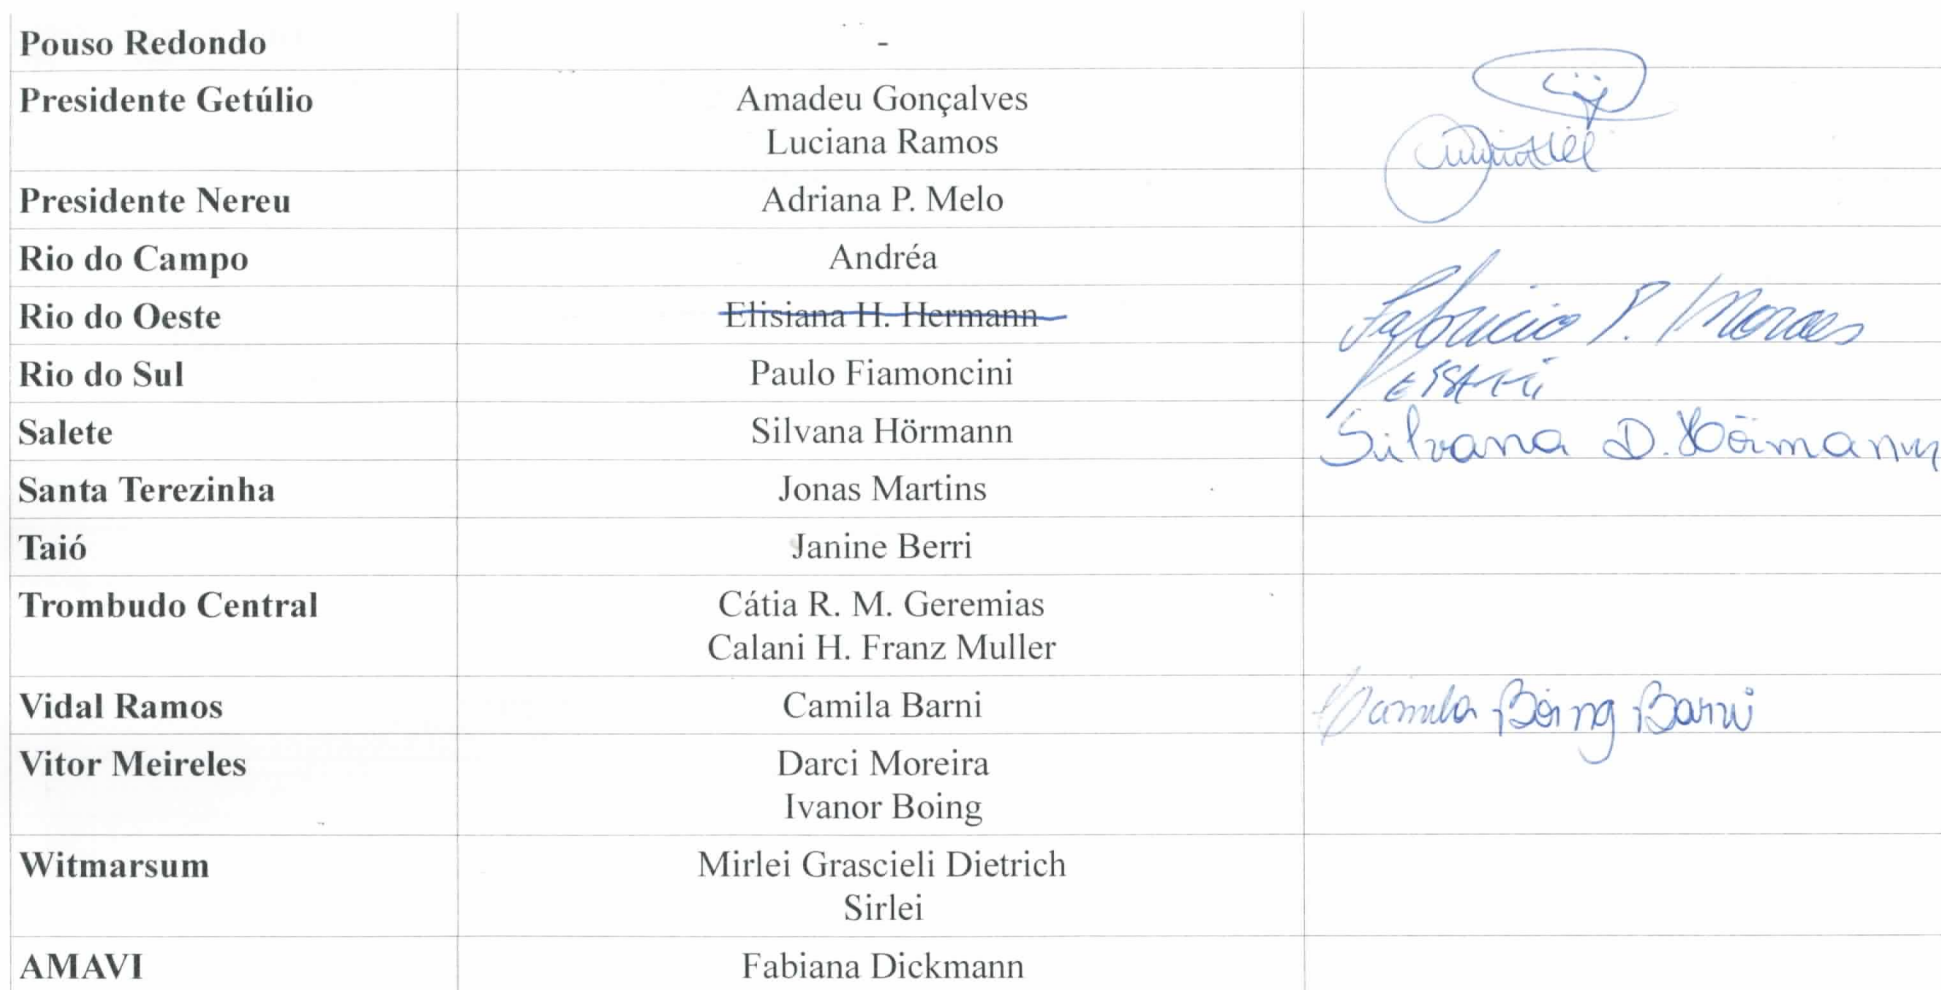 Pouso Redondo -
Presidente Getúlio Amadeu Gonçalves
Luciana Ramos
Presidente Nereu Adriana P. Melo
Rio do Campo Andréa
Rio do Oeste Elisiana H. Hermann Fabricio P. Moraes
Rio do Sul Paulo Fiamoncini
Salete Silvana Hörmann Silvana D. Hörmann
Santa Terezinha Jonas Martins
Taió Janine Berri
Trombudo Central Cátia R. M. Geremias
Calani H. Franz Muller
Vidal Ramos Camila Barni Camila Böing Barni
Vitor Meireles Darci Moreira
Ivanor Boing
Witmarsum Mirlei Grascieli Dietrich
Sirlei
AMAVI Fabiana Dickmann